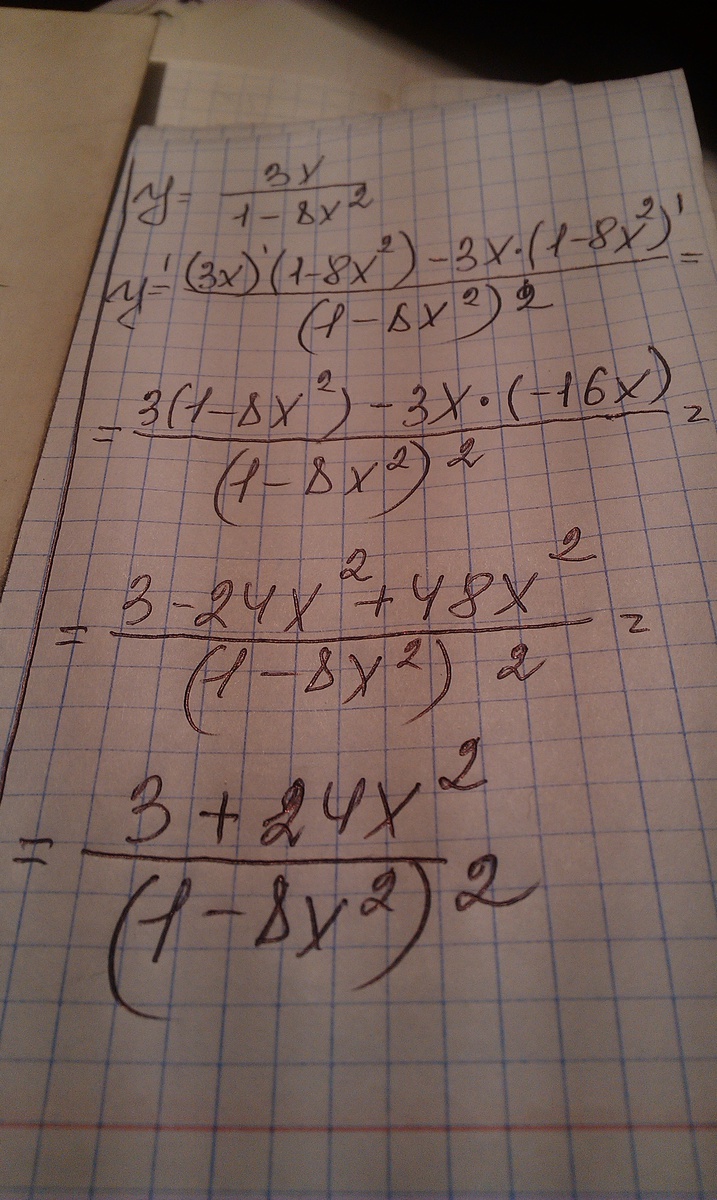 y = 3x / 1-8x²
y' = (3x)'(1-8x²) - 3x·(1-8x²)' / (1-8x²)² =
= 3(1-8x²) - 3x·(-16x) / (1-8x²)² =
= 3-24x²+48x² / (1-8x²)² =
= 3+24x² / (1-8x²)²